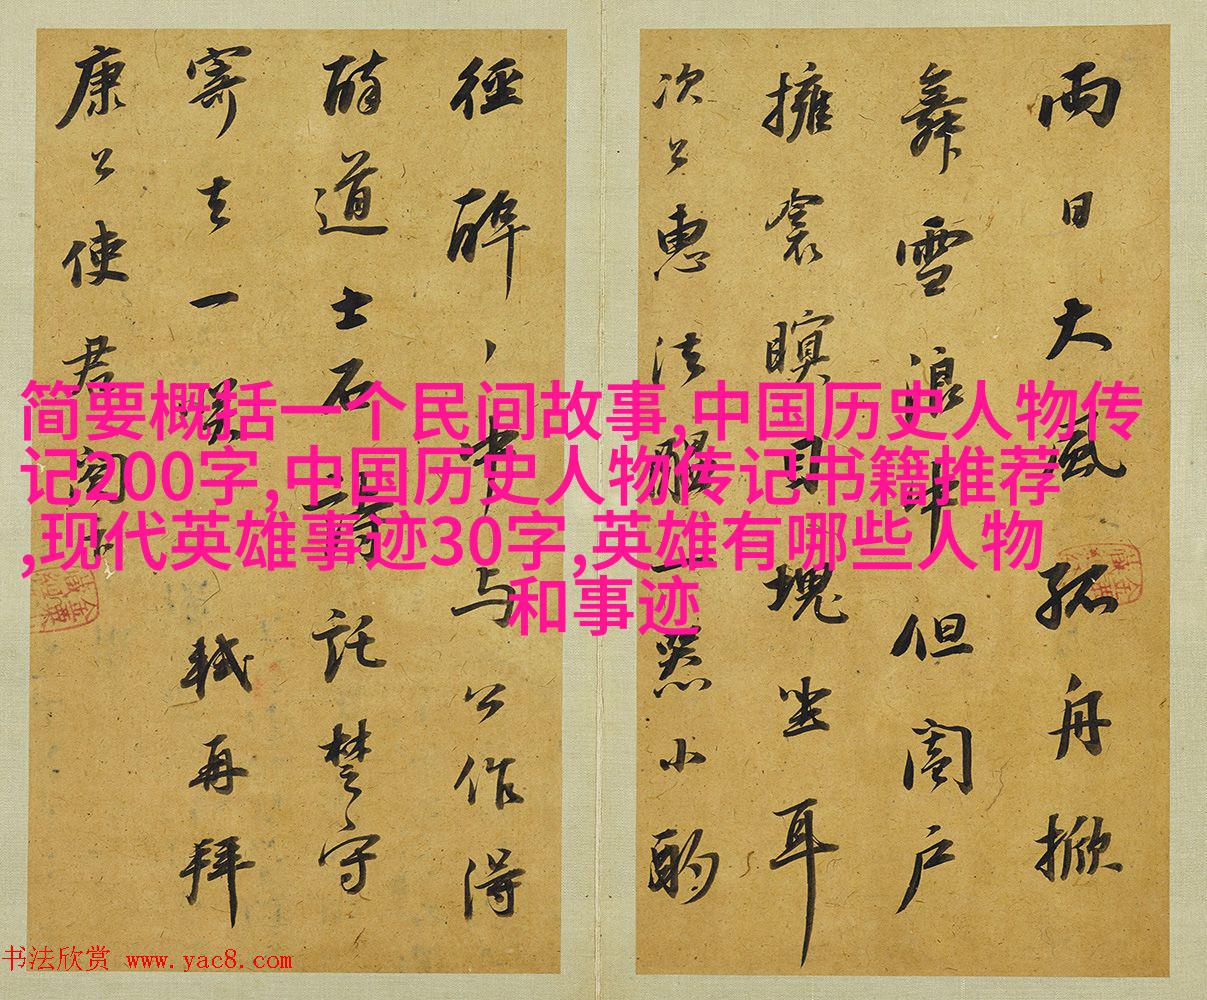 简要概括一个民间故事,中国历史人物传
记200字,中国历史人物传记书籍推荐
,现代英雄事迹30字,英雄有哪些人物
和事迹
兩日大風孤舟掀
舞雪浪中但闔戶
擁衾瞑目塊坐耳
次公惠法醞一器小酌
徑醉、中与公作得
醉道士石詩託楚守
寄去一笑 軾再拜
康公使君閤下
书法欣赏 www.yac8.com